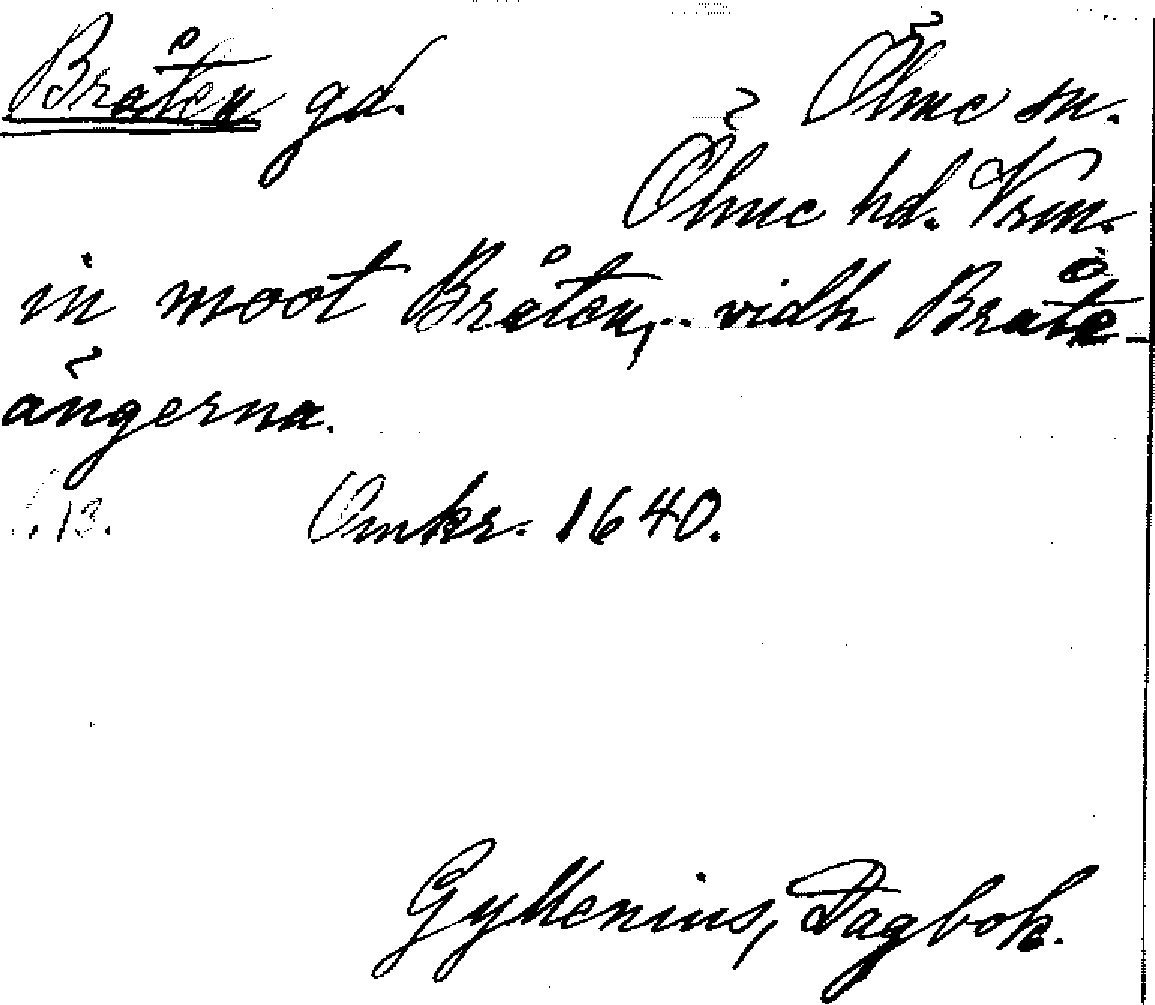 Bråten gd. Ölme sn.
Ölme hd. Vrm.
in moot Bråten,.. vidh Bråte-
ängerna.
s. 13. Omkr. 1640.
Gyllenius, Dagbok.